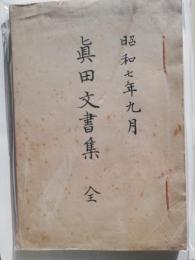 昭和七年九月
眞田文書集 全